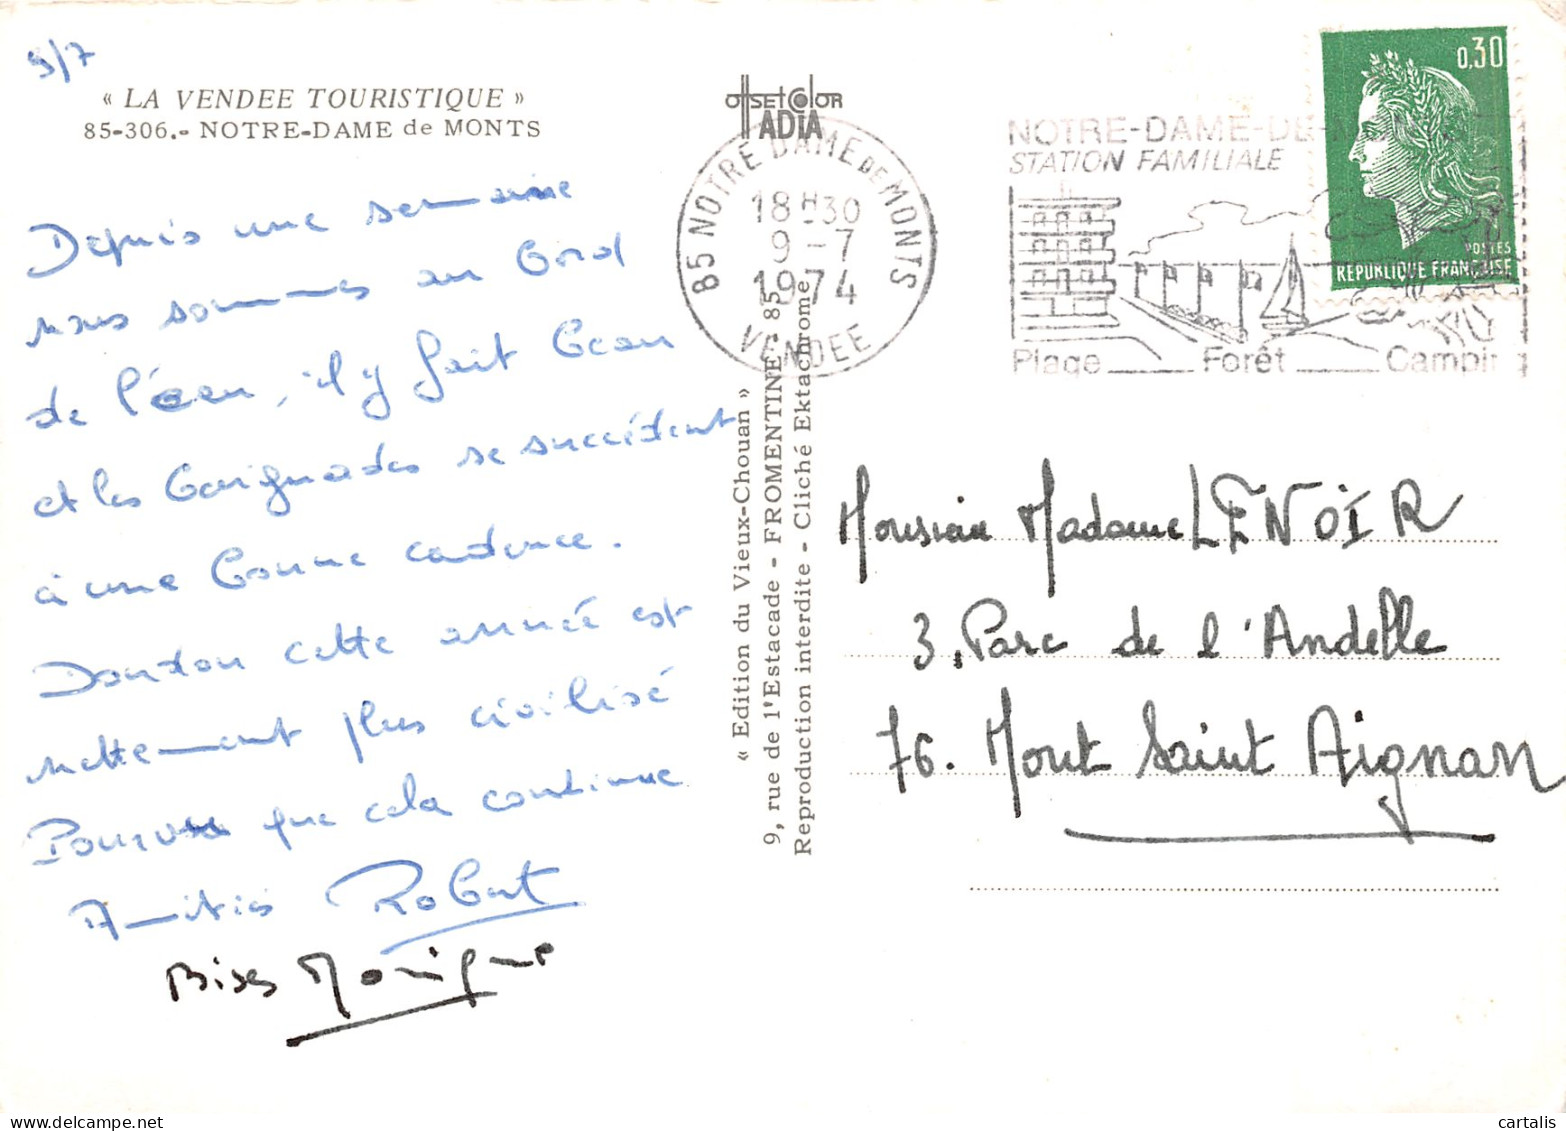 9/7
« LA VENDEE TOURISTIQUE »
85-306.- NOTRE-DAME de MONTS
Depuis une semaine
nous sommes au bord
de l'eau, il y fait beau
et les baignades se succédent
à une bonne cadence.
cette année est
nettement plus civilisé
Pourvu que cela continue
Amitiés Robert
Bises Monique
OFFSET COLOR
ADIA
85 NOTRE DAME DE MONTS
18H30
9-7
1974
VENDEE
NOTRE-DAME-DE-M
STATION FAMILIALE
Plage Forêt Campin
0,30
POSTES
REPUBLIQUE FRANÇAISE
« Edition du Vieux-Chouan »
9, rue de l'Estacade - FROMENTINE - 85
Reproduction interdite - Cliché Ektachrome
Monsieur Madame LENOIR
3, Parc de l'Andelle
76. Mont Saint Aignan
cartalis